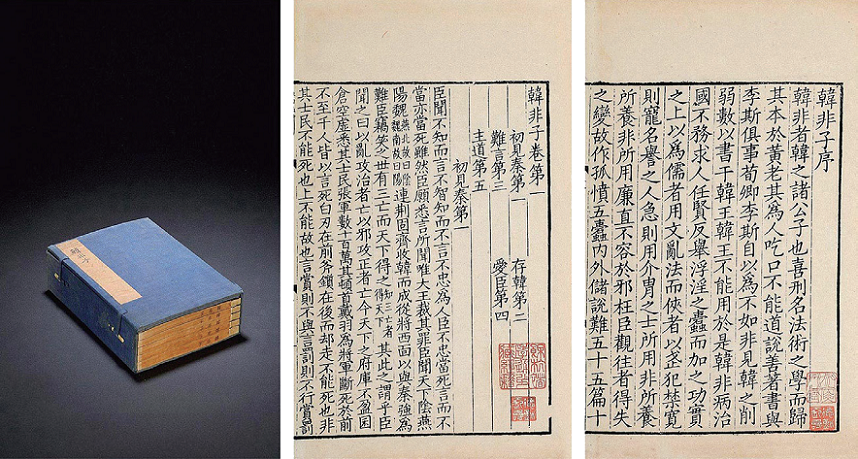 韓非子序
韓非者韓之諸公子也喜刑名法術之學而歸
其本於黃老其為人吃口不能道說善著書與
李斯俱事荀卿李斯自以為不如非見韓之削
弱數以書干韓王韓王不能用於是韓非病治
國不務求人任賢反舉浮淫之蠹而加之功實
之上以為儒者用文亂法而俠者以武犯禁寬
則寵名譽之人急則用介胄之士所用非所養
所養非所用廉直不容於邪枉臣觀往者得失
之變故作孤憤五蠹內外儲說難五十五篇十
韓非子卷第一
初見秦第一 存韓第二
難言第三 愛臣第四
主道第五
初見秦第一
臣聞不知而言不智知而不言不忠為人臣不忠當死言而不
當亦當死雖然臣願悉言所聞唯大王裁其罪臣聞天下陰燕
陽魏燕北故曰陰魏南故曰陽連荆固齊收韓而成從將西面以與秦強為
難臣竊笑之世有三亡而天下得之知三亡者得天下其此之謂乎臣
聞之曰以亂攻治者亡以邪攻正者亡今天下之府庫不盈囷
倉空虛悉其士民張軍數十百萬其頓首戴羽為將軍斷死於前
不至千人皆以言死白刃在前斧鑕在後而却走不能死也非
其士民不能死也上不能故也言賞則不與言罰則不行賞罰